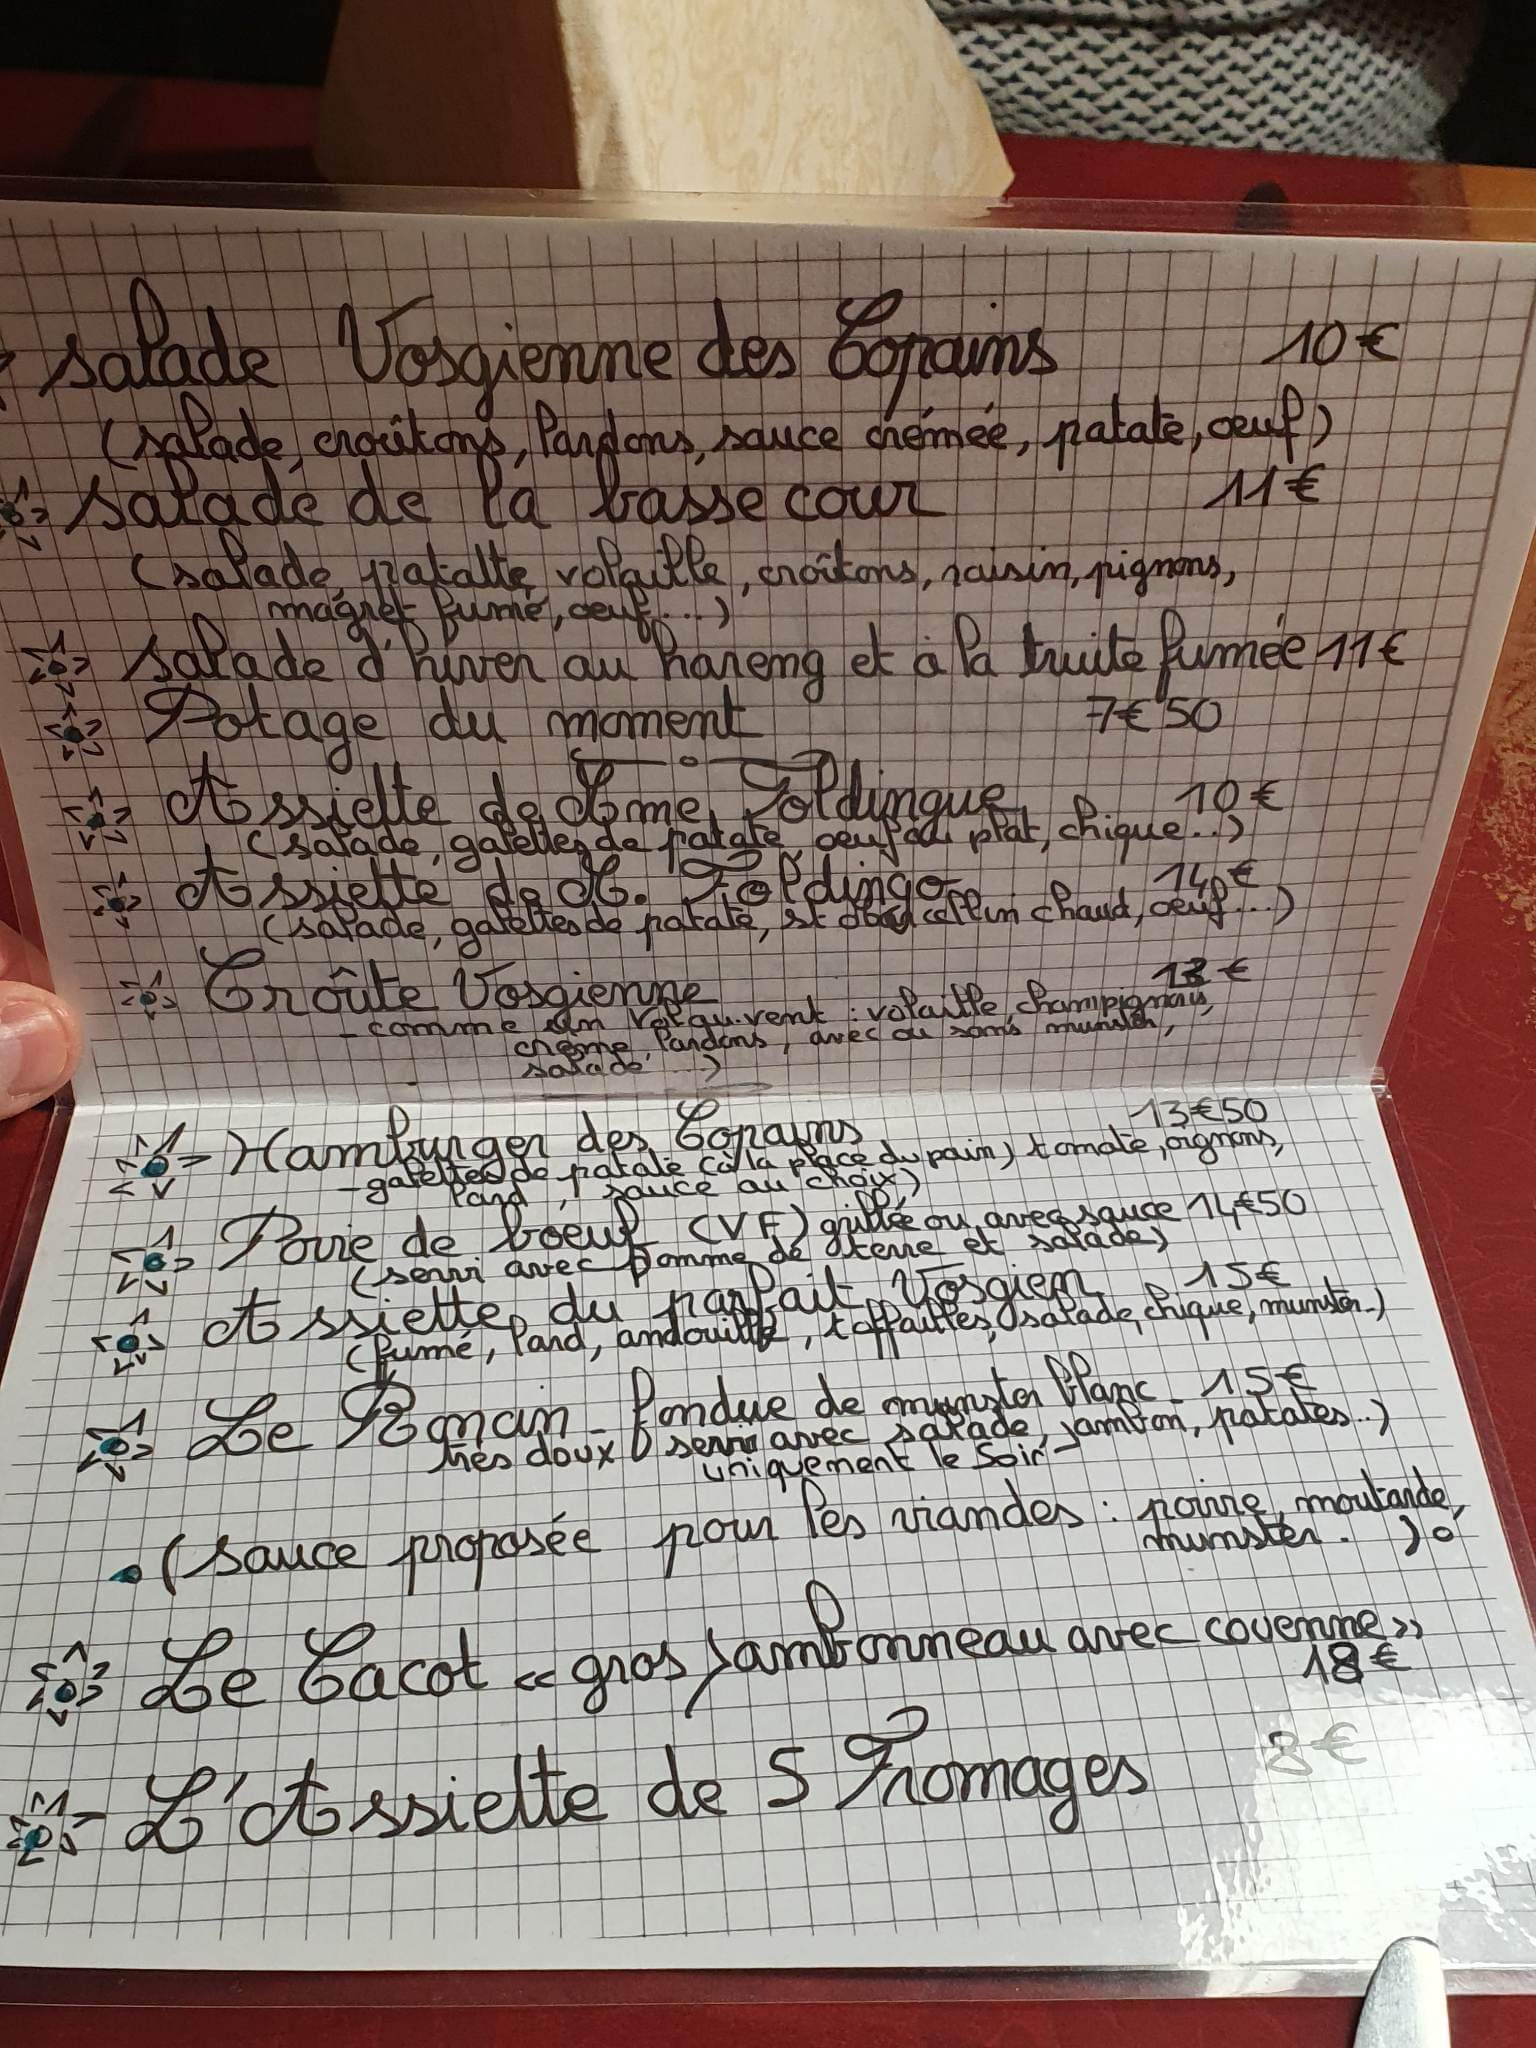 salade Vosgienne des Copains 10€
(salade, croûtons, lardons, sauce crémée, patate, oeuf)
salade de la basse cour 11€
(salade, patatte, volaille, croûtons, raisin, pignons,
magret fumé, oeuf...)
salade d'hiver au hareng et à la truite fumée 11€
Potage du moment 7€50
Assiette de Mme Foldingue 10€
(salade, galettes de patate, oeuf au plat, chique...)
Assiette de M. Foldingo 14€
(salade, galettes de patate, st marcellin chaud, oeuf...)
Croûte Vosgienne 13€
- comme un Vol qu.vent : volaille, champignons,
crème, lardons, avec ou sans munster,
salade ...)
Hamburger des Copains 13€50
- galettes de patate (à la place du pain) tomate, oignons,
lard, sauce au choix)
Poire de boeuf (VF) grillée ou avec sauce 14€50
(servi avec pomme de terre et salade)
Assiette du parfait Vosgien 15€
(fumé, lard, andouille, toffailles, salade, chique, munster..)
Le Romain - fondue de munster blanc - 15€
très doux servi avec salade, jambon, patates..)
uniquement le soir
(sauce proposée pour les viandes : poivre, moutarde,
munster. )
Le Cacot « gros jambonneau avec couenne »
18€
L'Assiette de 5 Fromages 8€